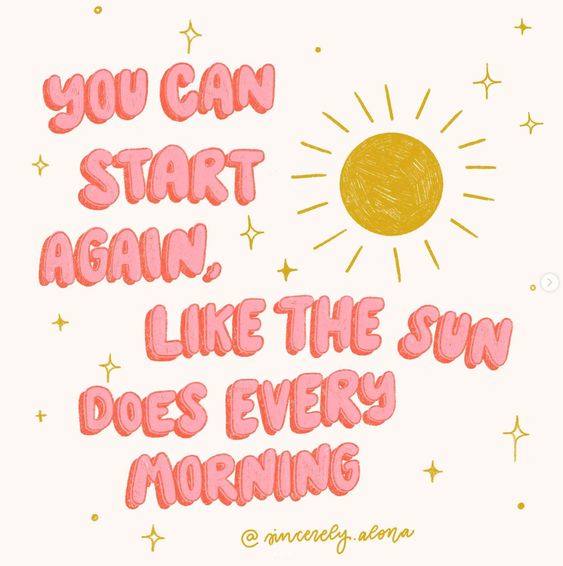 YOU CAN
START
AGAIN,
LIKE THE SUN
DOES EVERY
MORNING
@sincerely.alona